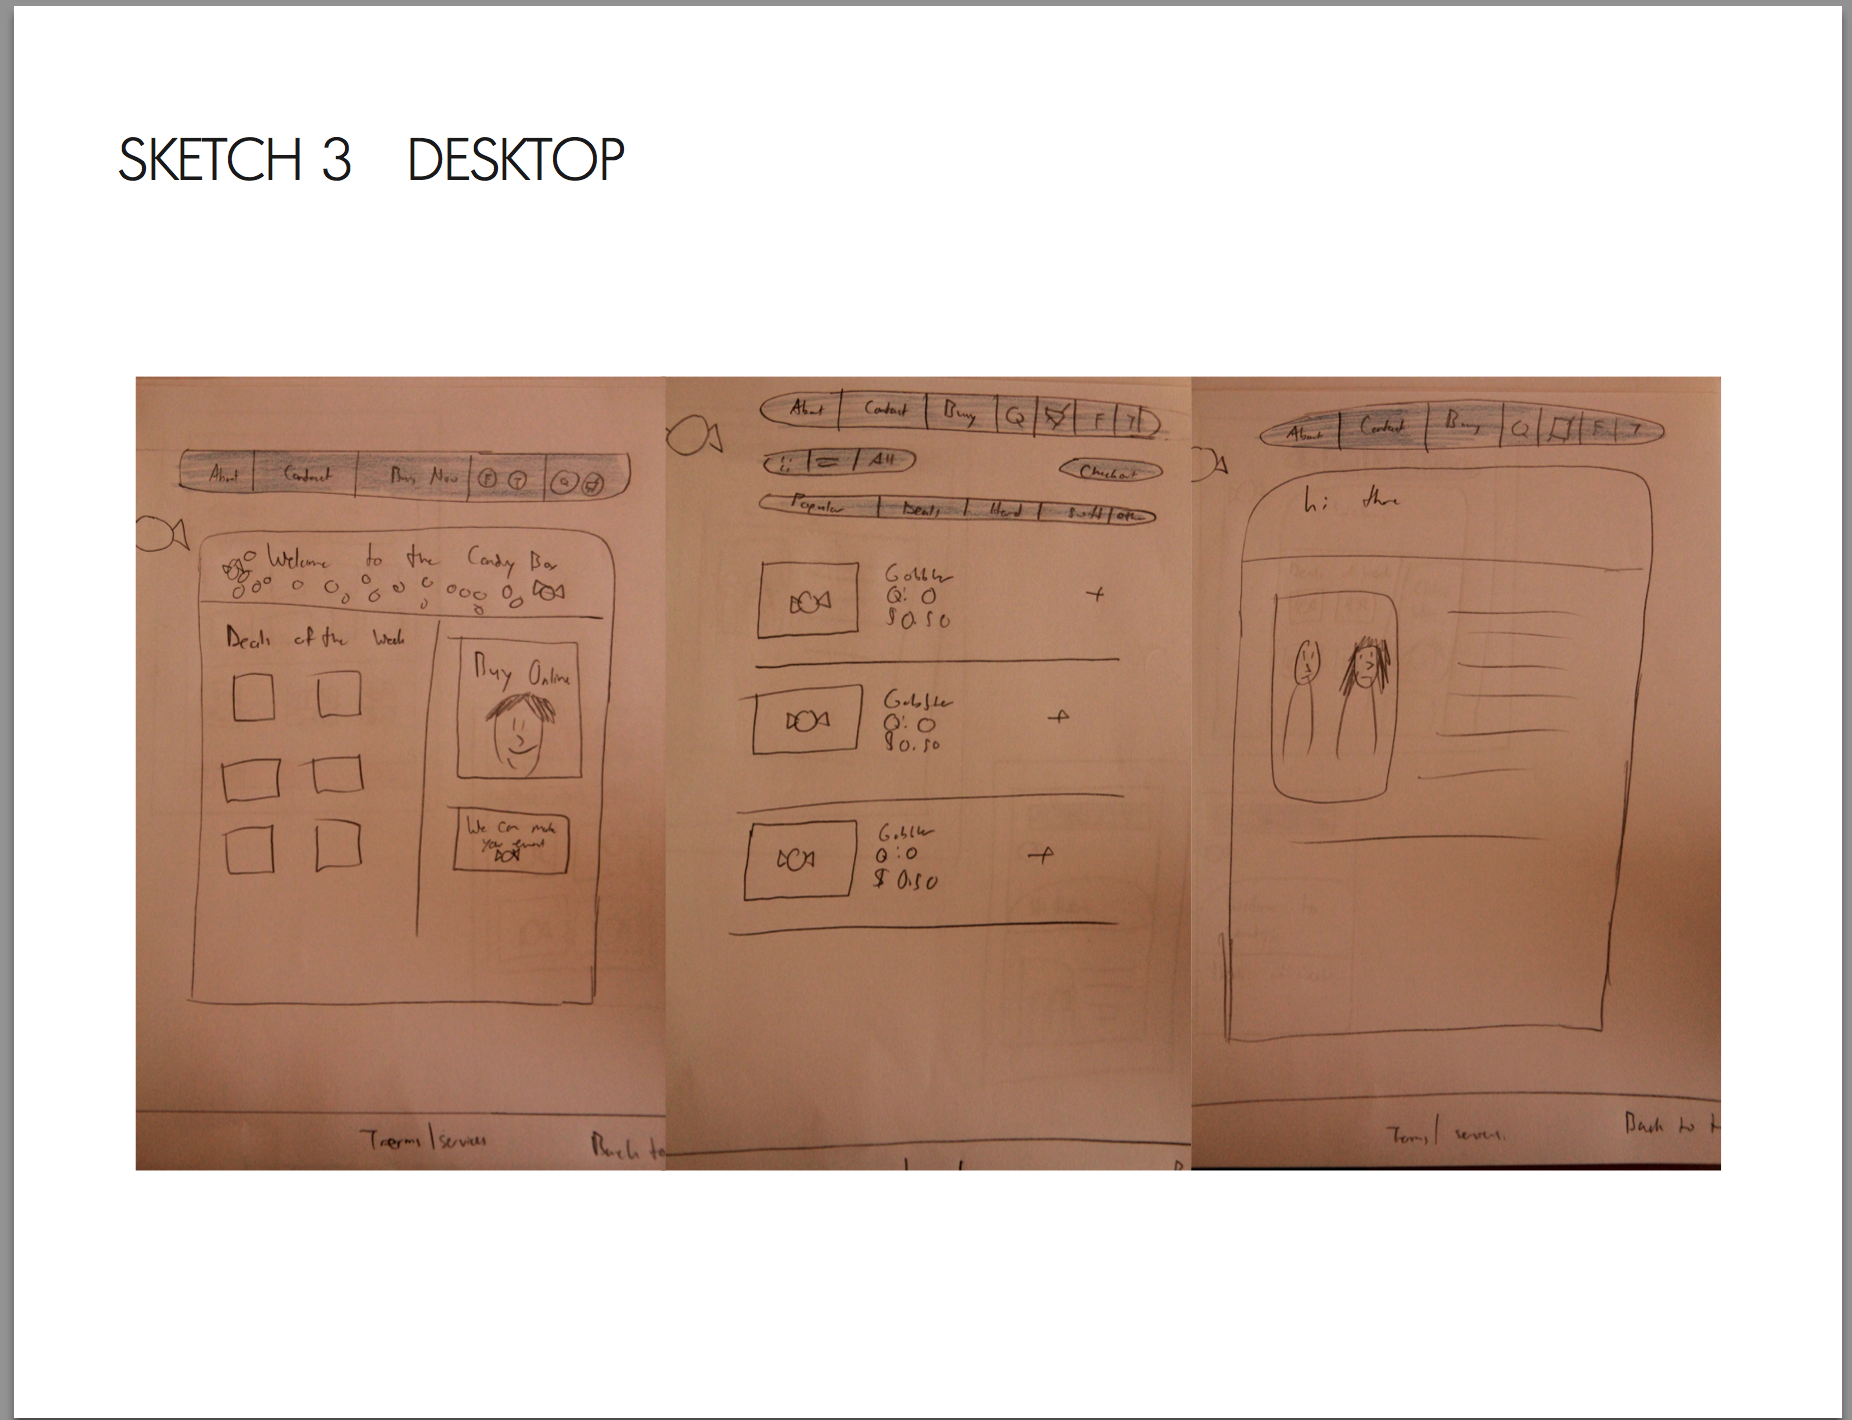 SKETCH 3 DESKTOP
About Contact Buy Now F T Q
Welcome to the Candy Bar
Deals of the Week
Buy Online
We can make
your event
Terms/services
Back to
About Contact Buy Q F T
All
Checkout
Popular Deals Hard
Gobbler
Q: 0
$0.50
Gobbler
Q: 0
$0.50
Gobbler
Q:0
$0.50
About Contact Buy Q F T
hi there
Terms/ services
Back to t